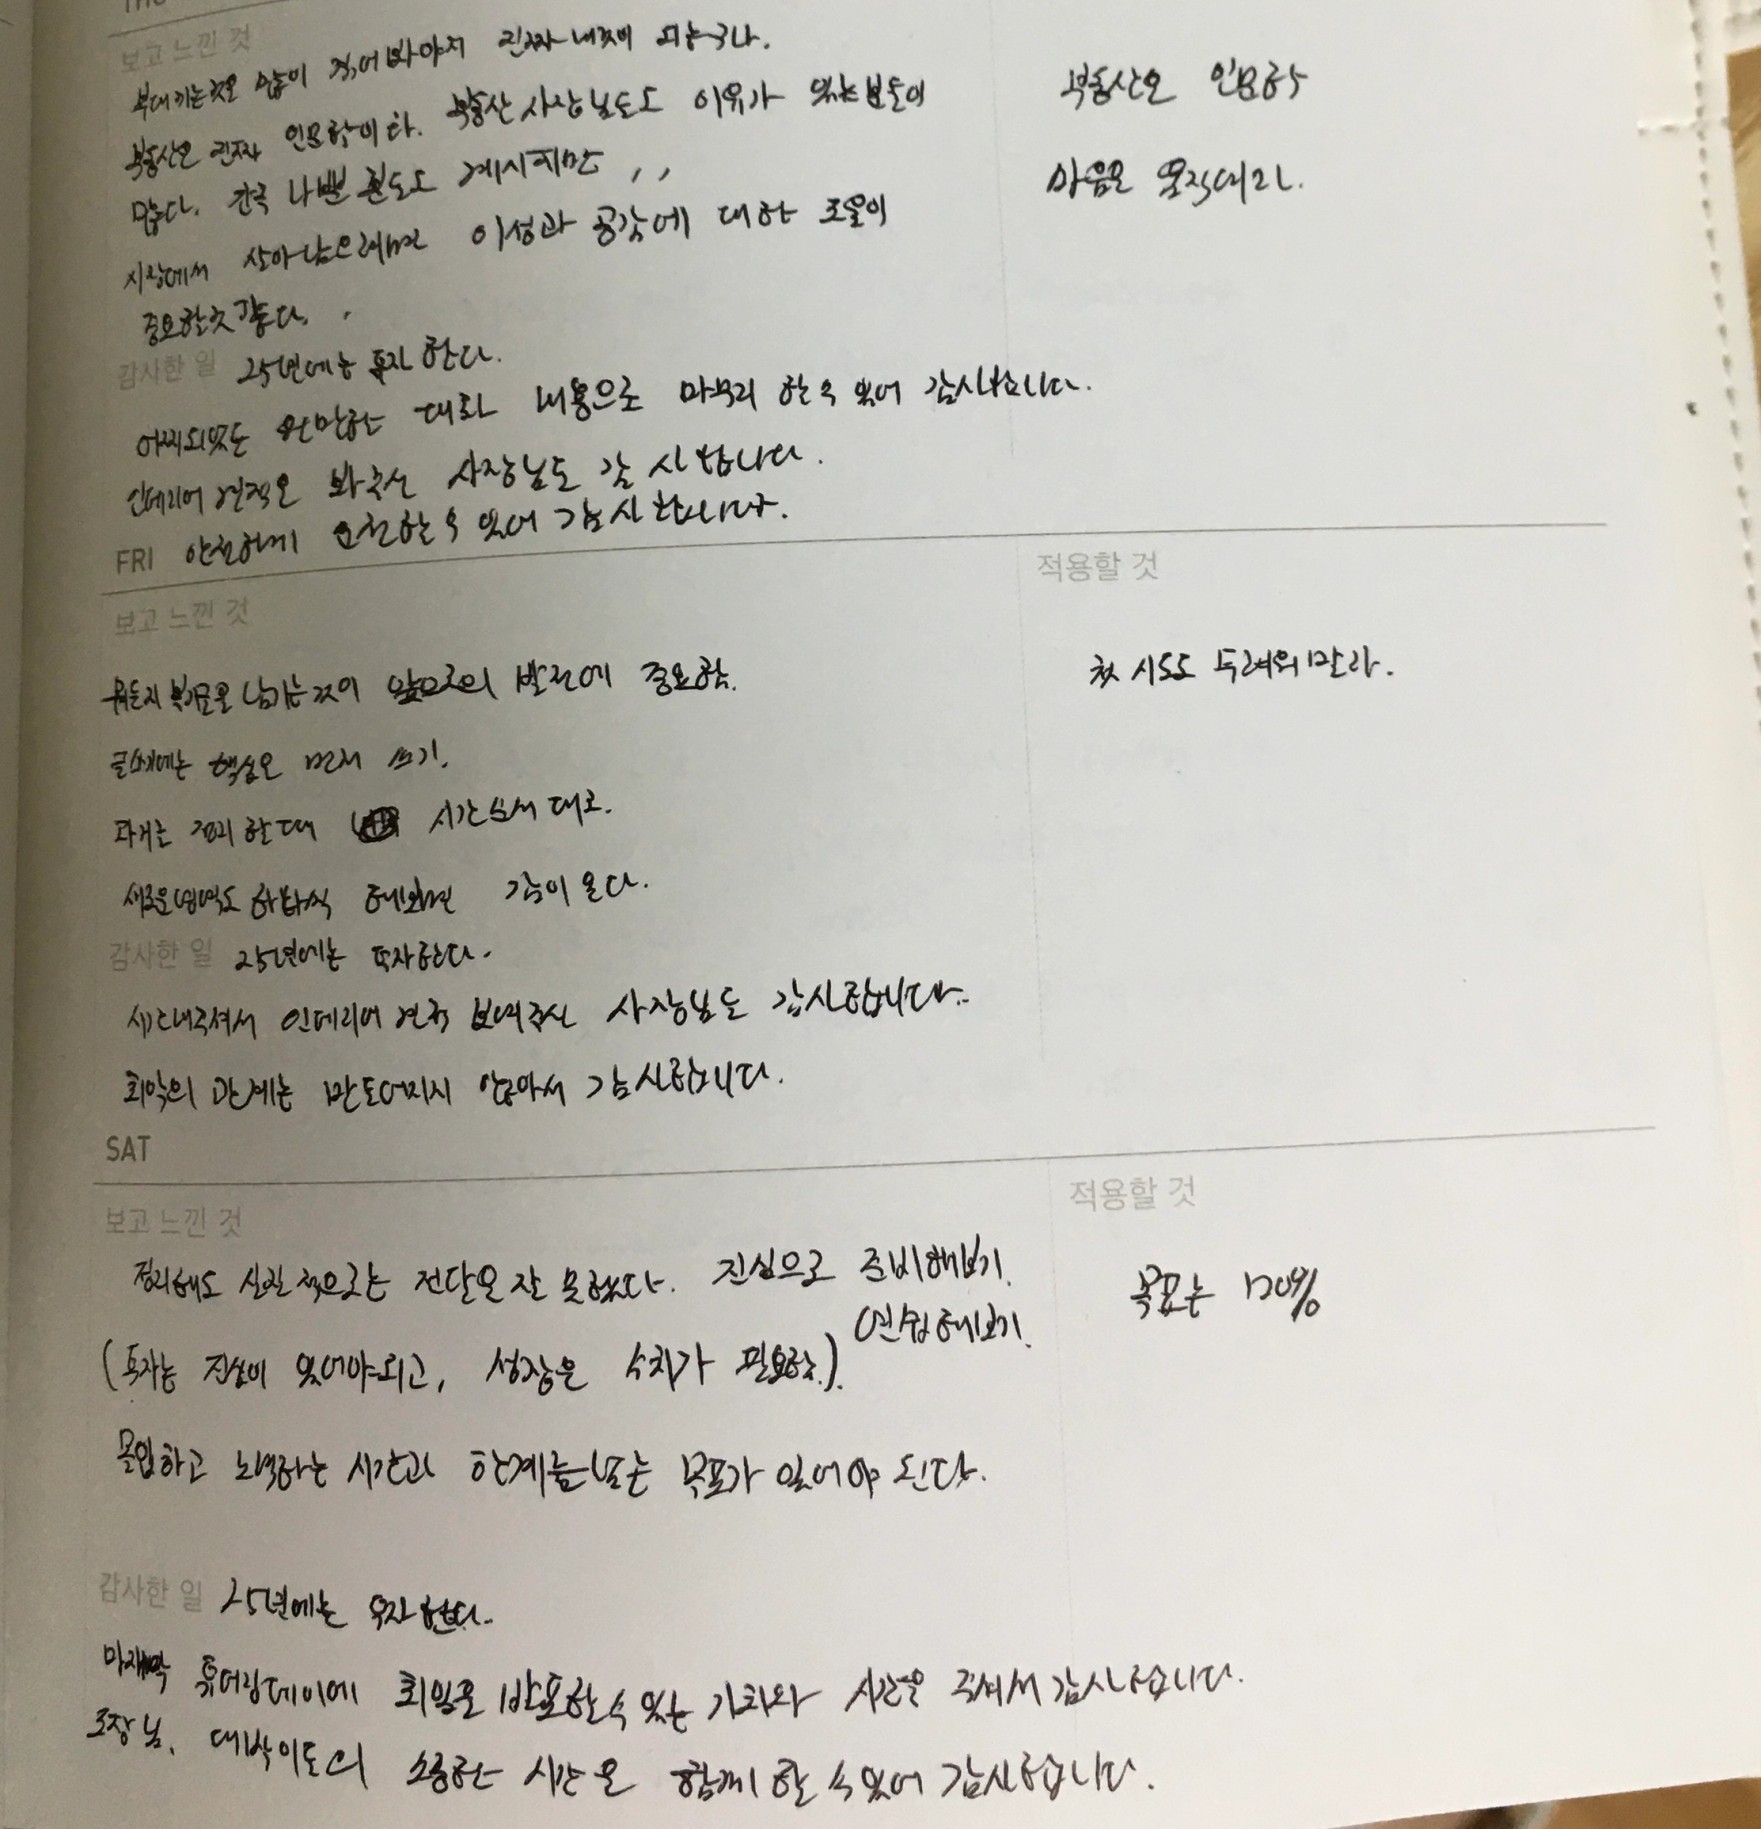 THU
보고 느낀 것
부대끼는것을 많이 적어봐야지 진짜 내것이 되는구나.
부동산은 진짜 인문학이다. 부동산 사장님도도 이유가 있는 분들이
많다. 간혹 나쁜 분도도 계시지만 , ,
시장에서 살아남으려면 이성과 공감에 대한 조율이
중요할것 같다.
부동산은 인문학
마음을 움직여라.
감사한 일 25년에는 투자한다.
어찌되었든 원만한 대화 내용으로 마무리 할 수 있어 감사합니다.
인테리어 견적을 봐주신 사장님도 감사합니다.
FRI 안전하게 오전할 수 있어 감사합니다.
보고 느낀 것
적용할 것
뭐든지 복기글을 남기는 것이 앞으로의 발전에 중요함.
첫 시도도 두려워 말라.
글쓰기에는 핵심을 먼저 쓰기.
과거는 정리할 때 시간순서 대로.
새로운 영역도 하나씩 해보면 감이 온다.
감사한 일 25년에는 투자한다.
시간내주셔서 인테리어 견적 보여주신 사장님도 감사합니다.
최악의 관계는 만들어지지 않아서 감사합니다.
SAT
보고 느낀 것
적용할 것
정리해도 실질적으로는 전달을 잘 못했다. 진심으로 준비해보기.
연습해보기.
목표는 120%
(투자는 진심이 있어야되고, 성장은 수치가 필요하.).
몰입하고 노력하는 시간과 한계를 넘는 목표가 있어야 된다.
감사한 일 25년에는 투자한다.
마지막 튜터링데이에 최임을 발표할 수 있는 기회와 시간을 주셔서 감사합니다.
조장님, 대박이도의 소중한 시간을 함께 할 수 있어 감사합니다.